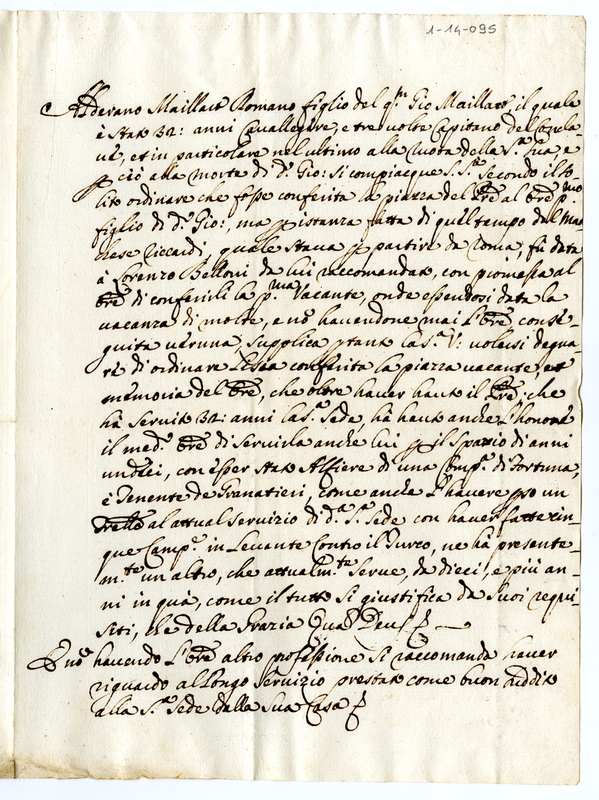 1-14-095
Alderano Maillard Romano figlio del q.m Gio Maillard, il quale
è stato 32: anni Cavallegiere, e tre volte Capitano del Concla
ue, et in particolare nel ultimo alla Ruota della S.tà Sua, e
p ciò alla morte di d.o Gio: si compiacque S. S.tà secondo il so-
lito ordinare che fosse conferita la piazza del Pre al Ore p.mo
figlio di d.o Gio:, ma p istanza fatta di quel tempo dal Mar-
chese Riccardi, quale staua p partire da Roma, fù data
à Lorenzo Belloni da lui raccomandato, con promessa al
Ore di conferirli la p.ma Vacante, onde essendosi data la
vacanza di molte, e nō hauendone mai l'Ore conse-
guita ueruna, supplica ptanto la S.tà V: uolersi degna-
re di ordinare li sia conferita la piazza uacante, et
memoria del Ore, che oltre hauer hauto il Pre, che
hà seruito 32: anni la S.ta Sede, hà hauto anche l'honore
il med.o Ore di seruirla anche lui p il spazio di anni
undici, con esser stato Alfiere di una Comp.a di Fortuna,
e Tenente de Granatieri, come anche l'hauere pso un
frello al attual seruizio di d.a S.ta Sede con hauer fatte cin-
que Camp.e in Leuante contro il Turco, ne hà presente-
m.te un altro, che attualm.te serue, da dieci, e più an-
ni in quà, come il tutto si giustifica da suoi requi-
siti, che della Grazia Quas Deus
E nō hauendo l'Ore altro professione si raccomanda hauer
riguardo al longo seruizio prestato come buon suddito
alla S.ta Sede dalla sua Casa